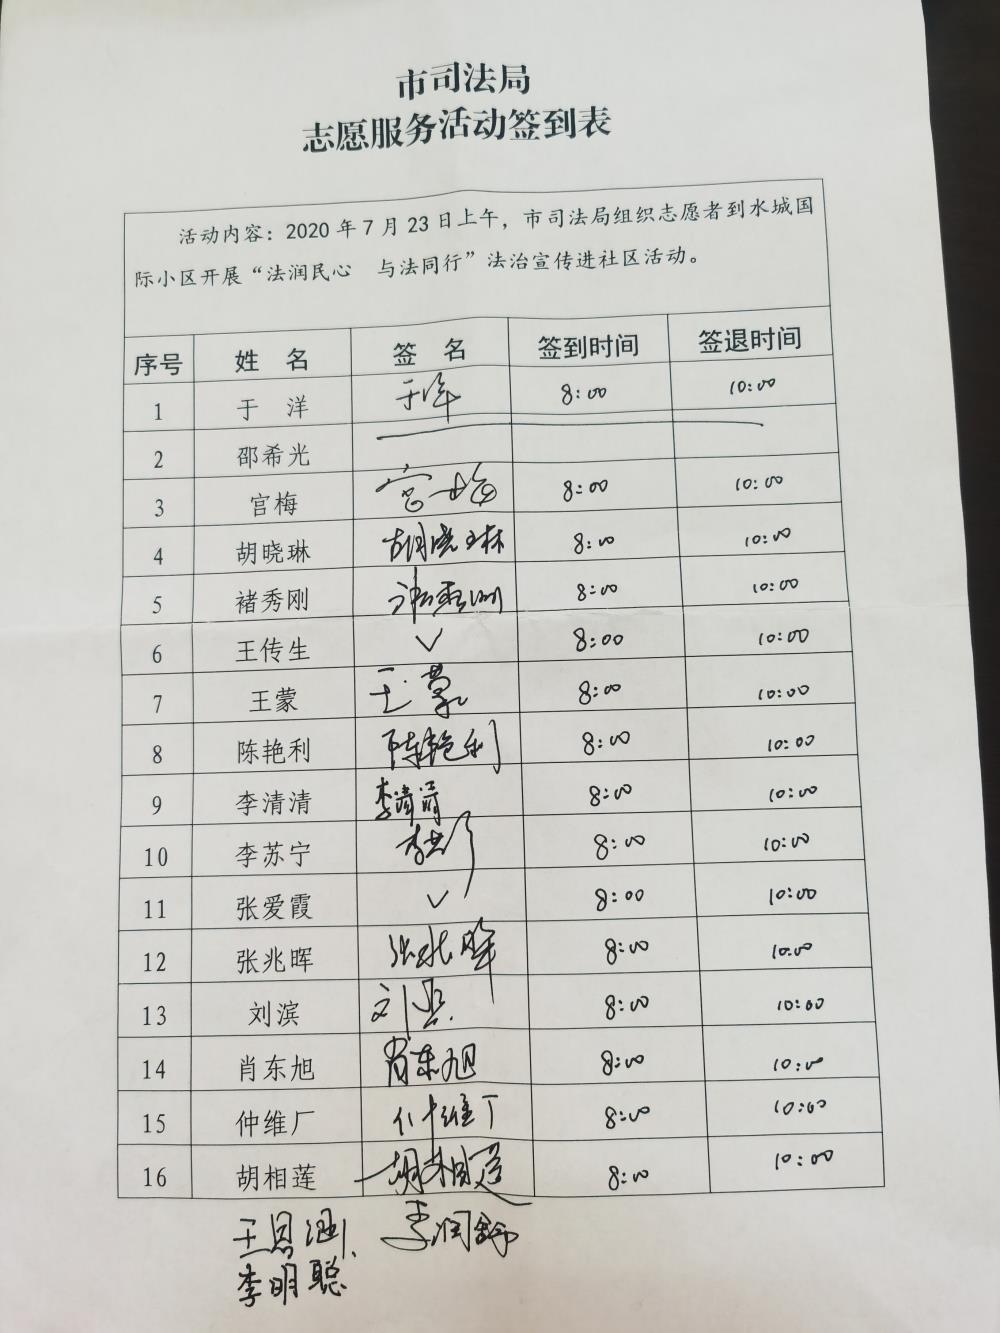 市司法局
志愿服务活动签到表
活动内容：2020年7月23日上午，市司法局组织志愿者到水城国
际小区开展“法润民心　与法同行”法治宣传进社区活动。
序号 姓　名 签　名 签到时间 签退时间
1 于　洋 于洋 8:00 10:00
2 邵希光
3 宫梅 宫梅 8:00 10:00
4 胡晓琳 胡晓琳 8:00 10:00
5 褚秀刚 褚秀刚 8:00 10:00
6 王传生 ✓ 8:00 10:00
7 王蒙 王蒙 8:00 10:00
8 陈艳利 陈艳利 8:00 10:00
9 李清清 李清清 8:00 10:00
10 李苏宁 李苏宁 8:00 10:00
11 张爱霞 ✓ 8:00 10:00
12 张兆晖 张兆晖 8:00 10:00
13 刘滨 刘滨 8:00 10:00
14 肖东旭 肖东旭 8:00 10:00
15 仲维厂 仲维厂 8:00 10:00
16 胡相莲 胡相莲 8:00 10:00
王恩 李润
李明聪